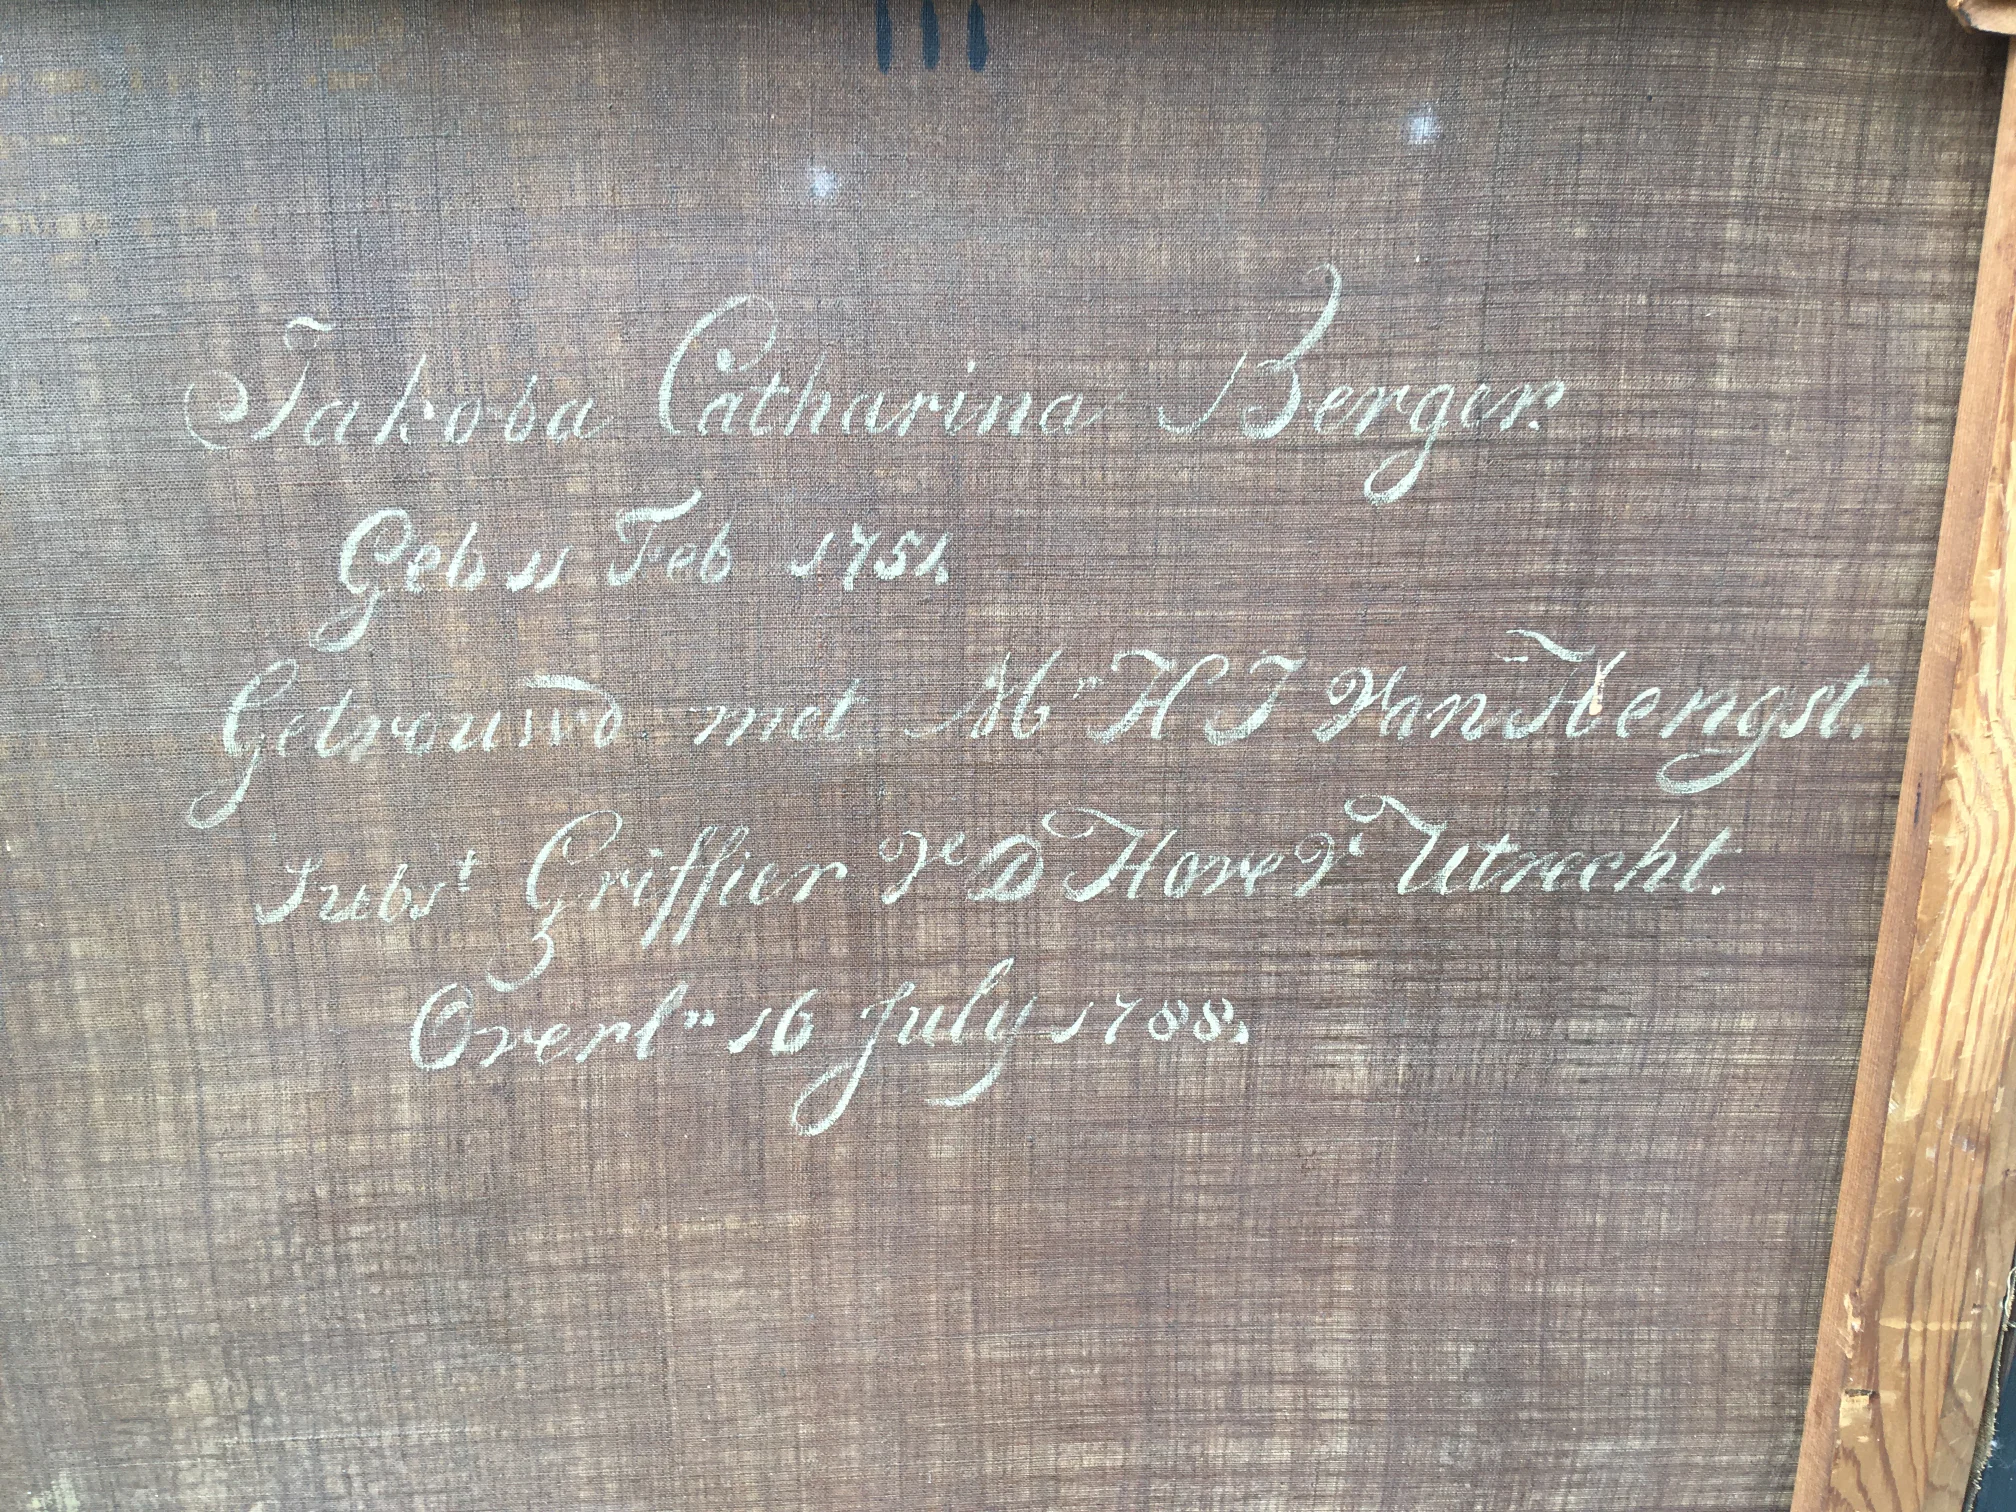 Jakoba Catharina Berger.
Geb 11 Feb 1751.
Getrouwd met Mr H J Van Hengst.
Subst Griffier Hove Utrecht.
Overln 16 July 1788.